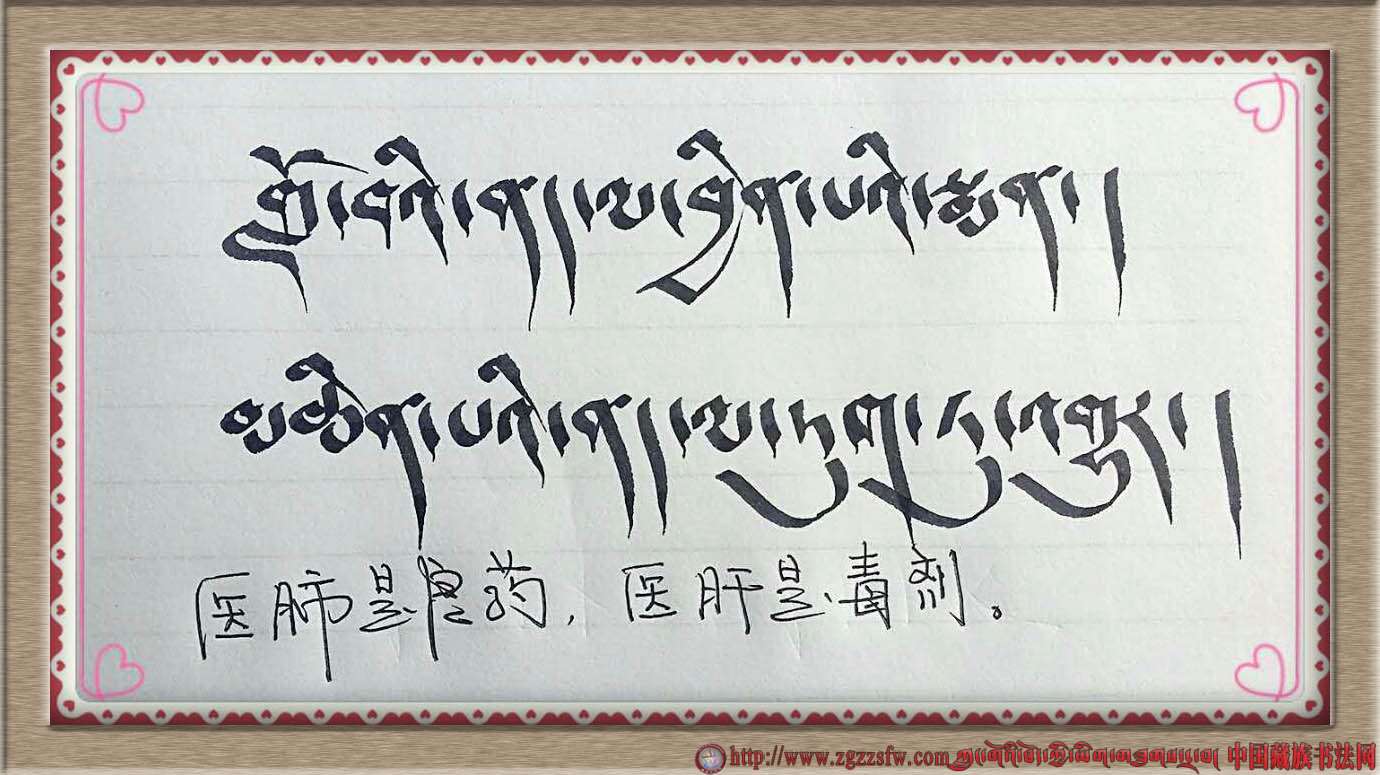 གློ་བའི་ནད་ལ་བྱིན་པའི་སྨན།
མཆིན་པའི་ནད་ལ་དུག་ཏུ་འགྱུར།
医肺是良药，医肝是毒剂。
http://www.zgzzsfw.com 中国藏族书法网